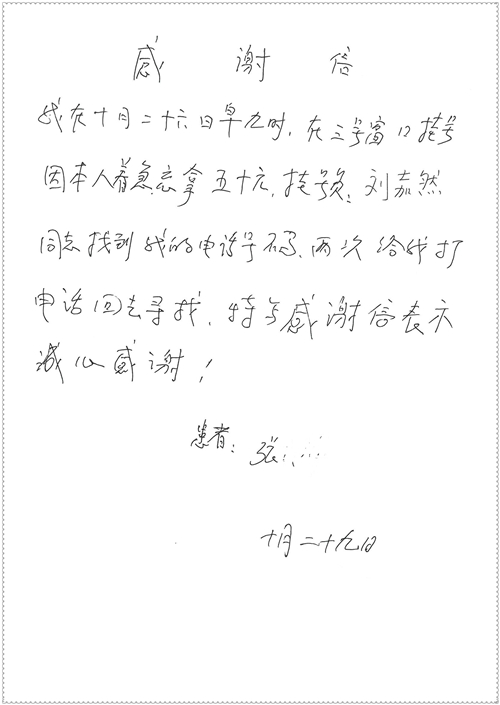 感谢信
我在十月二十六日早九时，在三号窗口挂号
因本人着急忘拿五十元，挂号员：刘嘉然
同志找到我的电话号码、两次给我打
电话回去寻找，特写感谢信表示
诚心感谢！
患者：张
十月二十九日